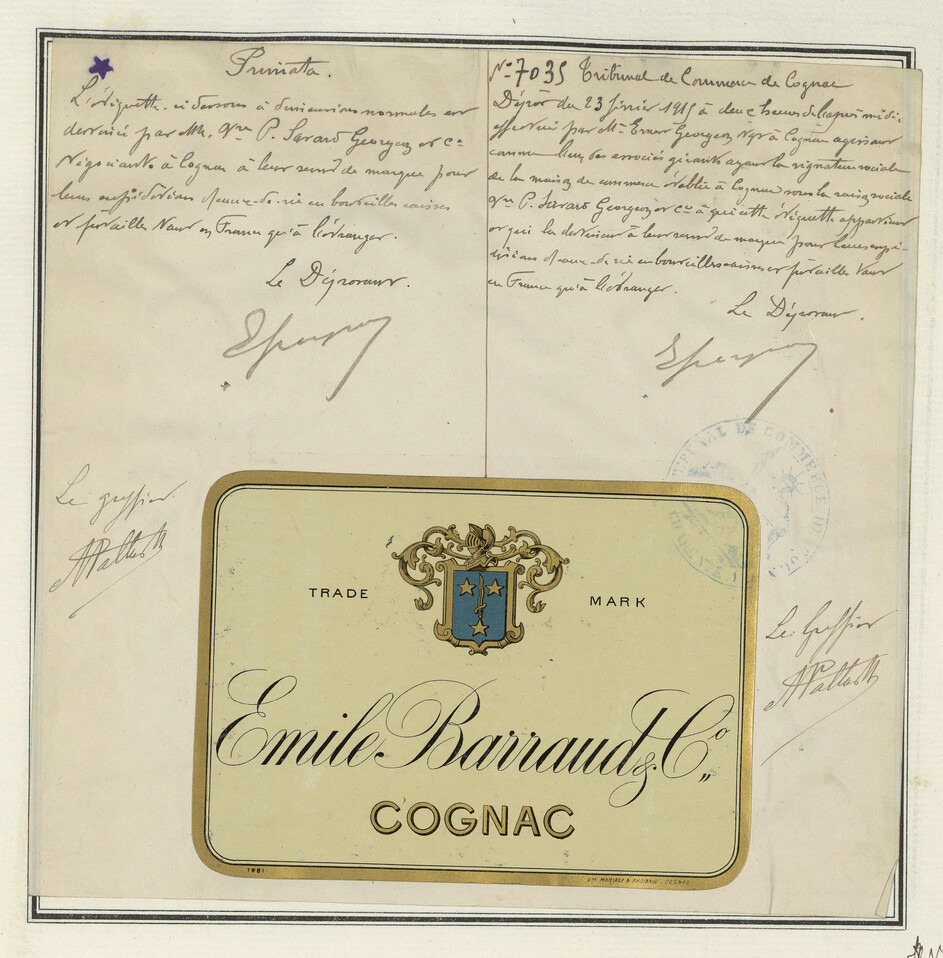 Primata.
L'étiquette ci dessous à dimensions normales est
destinée par MM. Vve P. Savard Georgeon et Cie
Négociants à Cognac à leur servir de marque pour
leurs expéditions d'eaux-de-vie en bouteilles caisses
et futailles tant en France qu'à l'étranger.
Le Déposant.
Le greffier
N° 7035 Tribunal de Commerce de Cognac
Dépôt du 23 février 1915 à deux heures de l'après midi
effectué par Mr Georgeon Ngt à Cognac agissant
comme l'un des associés gérants ayant la signature sociale
de la maison de commerce établie à Cognac sous la raison sociale
Vve P. Savard Georgeon et Cie à qui cette étiquette appartient
et qui la destine à leur servir de marque pour leurs expé-
ditions d'eaux-de-vie en bouteilles caisses et futailles tant
en France qu'à l'étranger.
Le Déposant.
TRIBUNAL DE COMMERCE DE
Le Greffier
TRADE MARK
Emile Barraud & Co„
COGNAC
1981
COGNAC